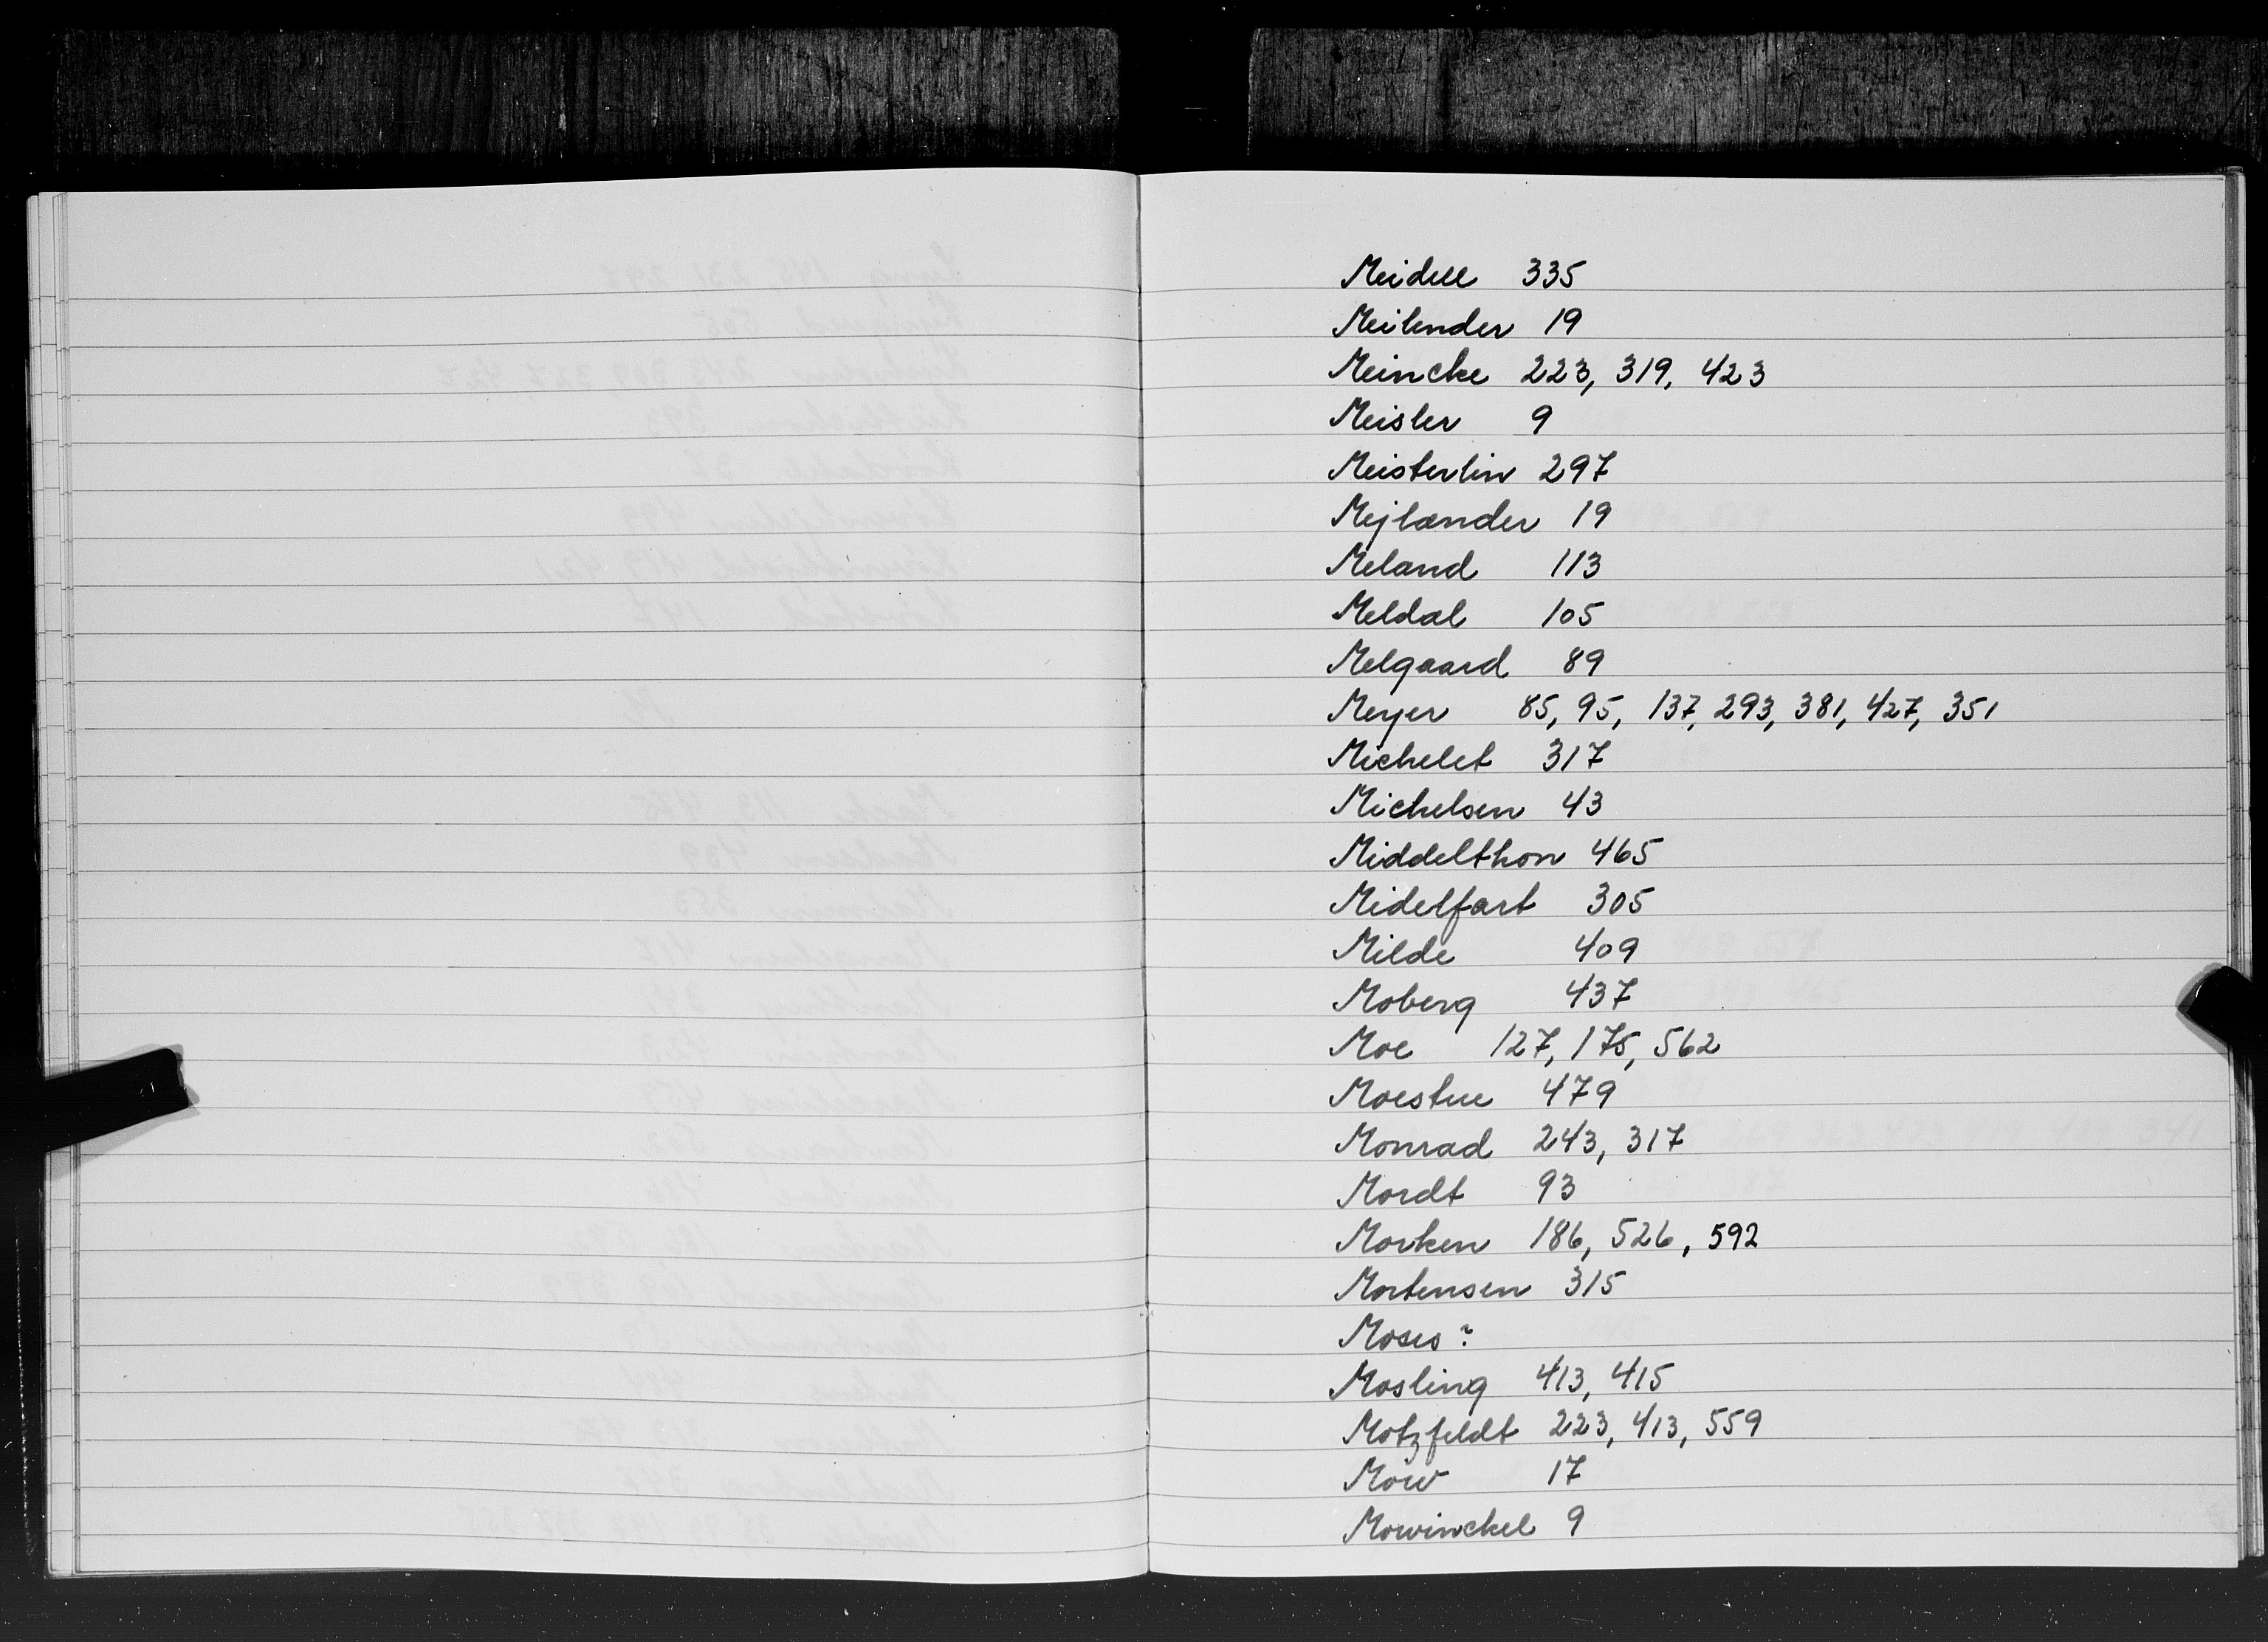 Meidell 335
Meilender 19
Meincke 223, 319, 423
Meisler 9
Meisterlin 297
Mejlænder 19
Meland 113
Meldal 105
Melgaard 89
Meyer 85, 95, 137, 293, 381, 427, 351
Michelet 317
Michelsen 43
Middelthon 465
Midelfart 305
Milde 409
Moberg 437
Moe 127, 175, 562
Moestue 479
Monrad 243, 317
Mordt 93
Morken 186, 526, 592
Mortensen 315
Moses ?
Mosling 413, 415
Motzfeldt 223, 413, 559
Mow 17
Mowinckel 9